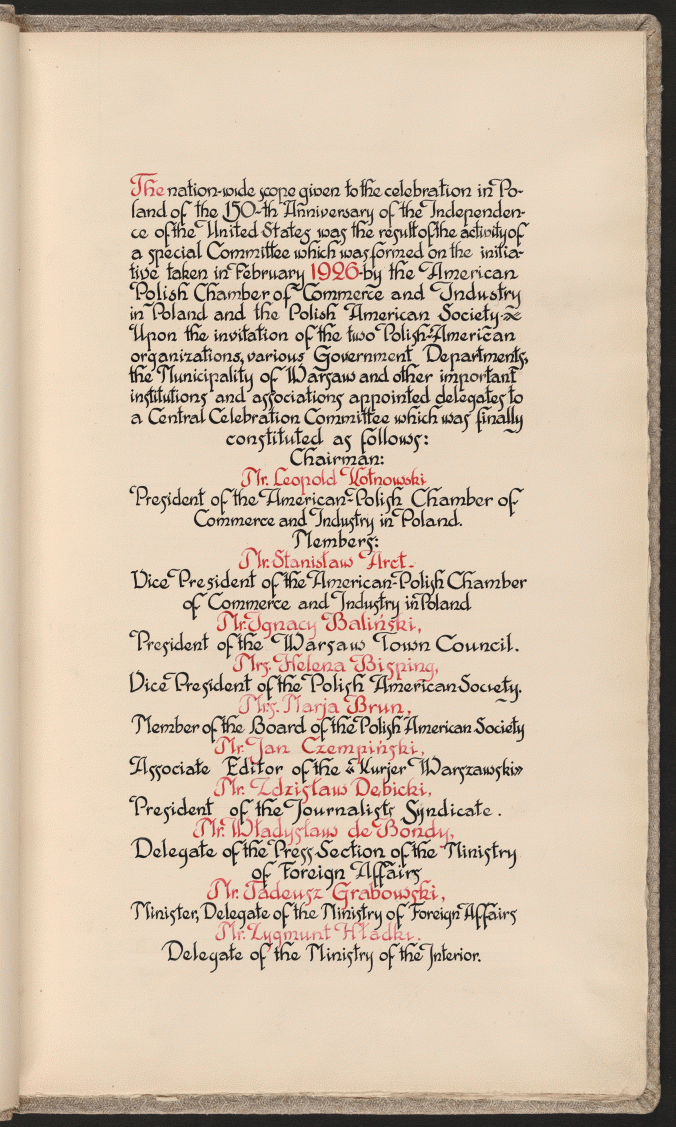 The nation-wide scope given to the celebration in Po-
land of the 150-th Anniversary of the Independen-
ce of the United States was the result of the activity of
a special Committee which was formed on the initia-
tive taken in February 1926-by the American
Polish Chamber of Commerce and Industry
in Poland and the Polish American Society-
Upon the invitation of the two Polish-American
organizations, various Government Departments,
the Municipality of Warsaw and other important
institutions and associations appointed delegates to
a Central Celebration Committee which was finally
constituted as follows:
Chairman:
Mr. Leopold Kotnowski
President of the American-Polish Chamber of
Commerce and Industry in Poland.
Members:
Mr. Stanisław Arct-
Vice President of the American-Polish Chamber
of Commerce and Industry in Poland
Mr. Ignacy Baliński,
President of the Warsaw Town Council.
Mrs. Helena Bisping,
Vice President of the Polish American Society.
Mrs. Marja Brun,
Member of the Board of the Polish American Society
Mr. Jan Czempiński,
Associate Editor of the «Kurjer Warszawski»
Mr. Zdzisław Dębicki,
President of the Journalists Syndicate.
Mr. Władysław de Bondy,
Delegate of the Press-Section of the Ministry
of Foreign Affairs
Mr. Tadeusz Grabowski,
Minister, Delegate of the Ministry of Foreign Affairs
Mr. Zygmunt Hładki.
Delegate of the Ministry of the Interior.